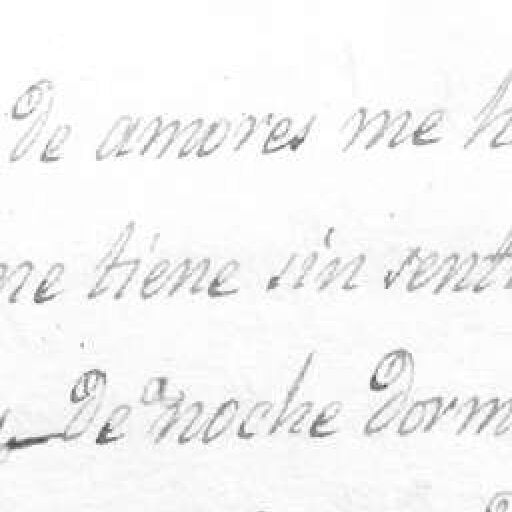 De amores me h
me tiene sin senti
De a noche dorm